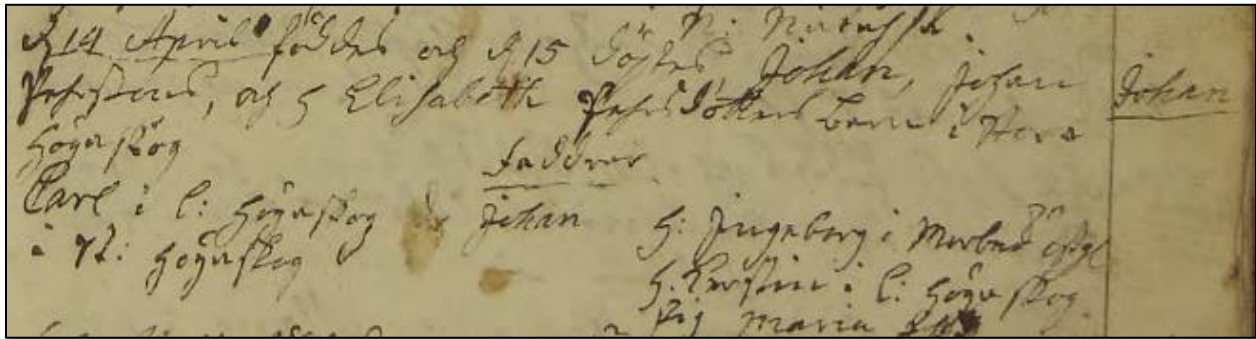 d 14 April föddes och d 15 döptes Johan, Johan
Pehrssons, och H Elisabeth Pehrsdotters barn i Stora
Högeskog
Johan
Faddrar
Carl i l: Högeskog Johan
i St: Högeskog
H: Ingeborg i
H. Kerstin i l: Högeskog
Pig Maria